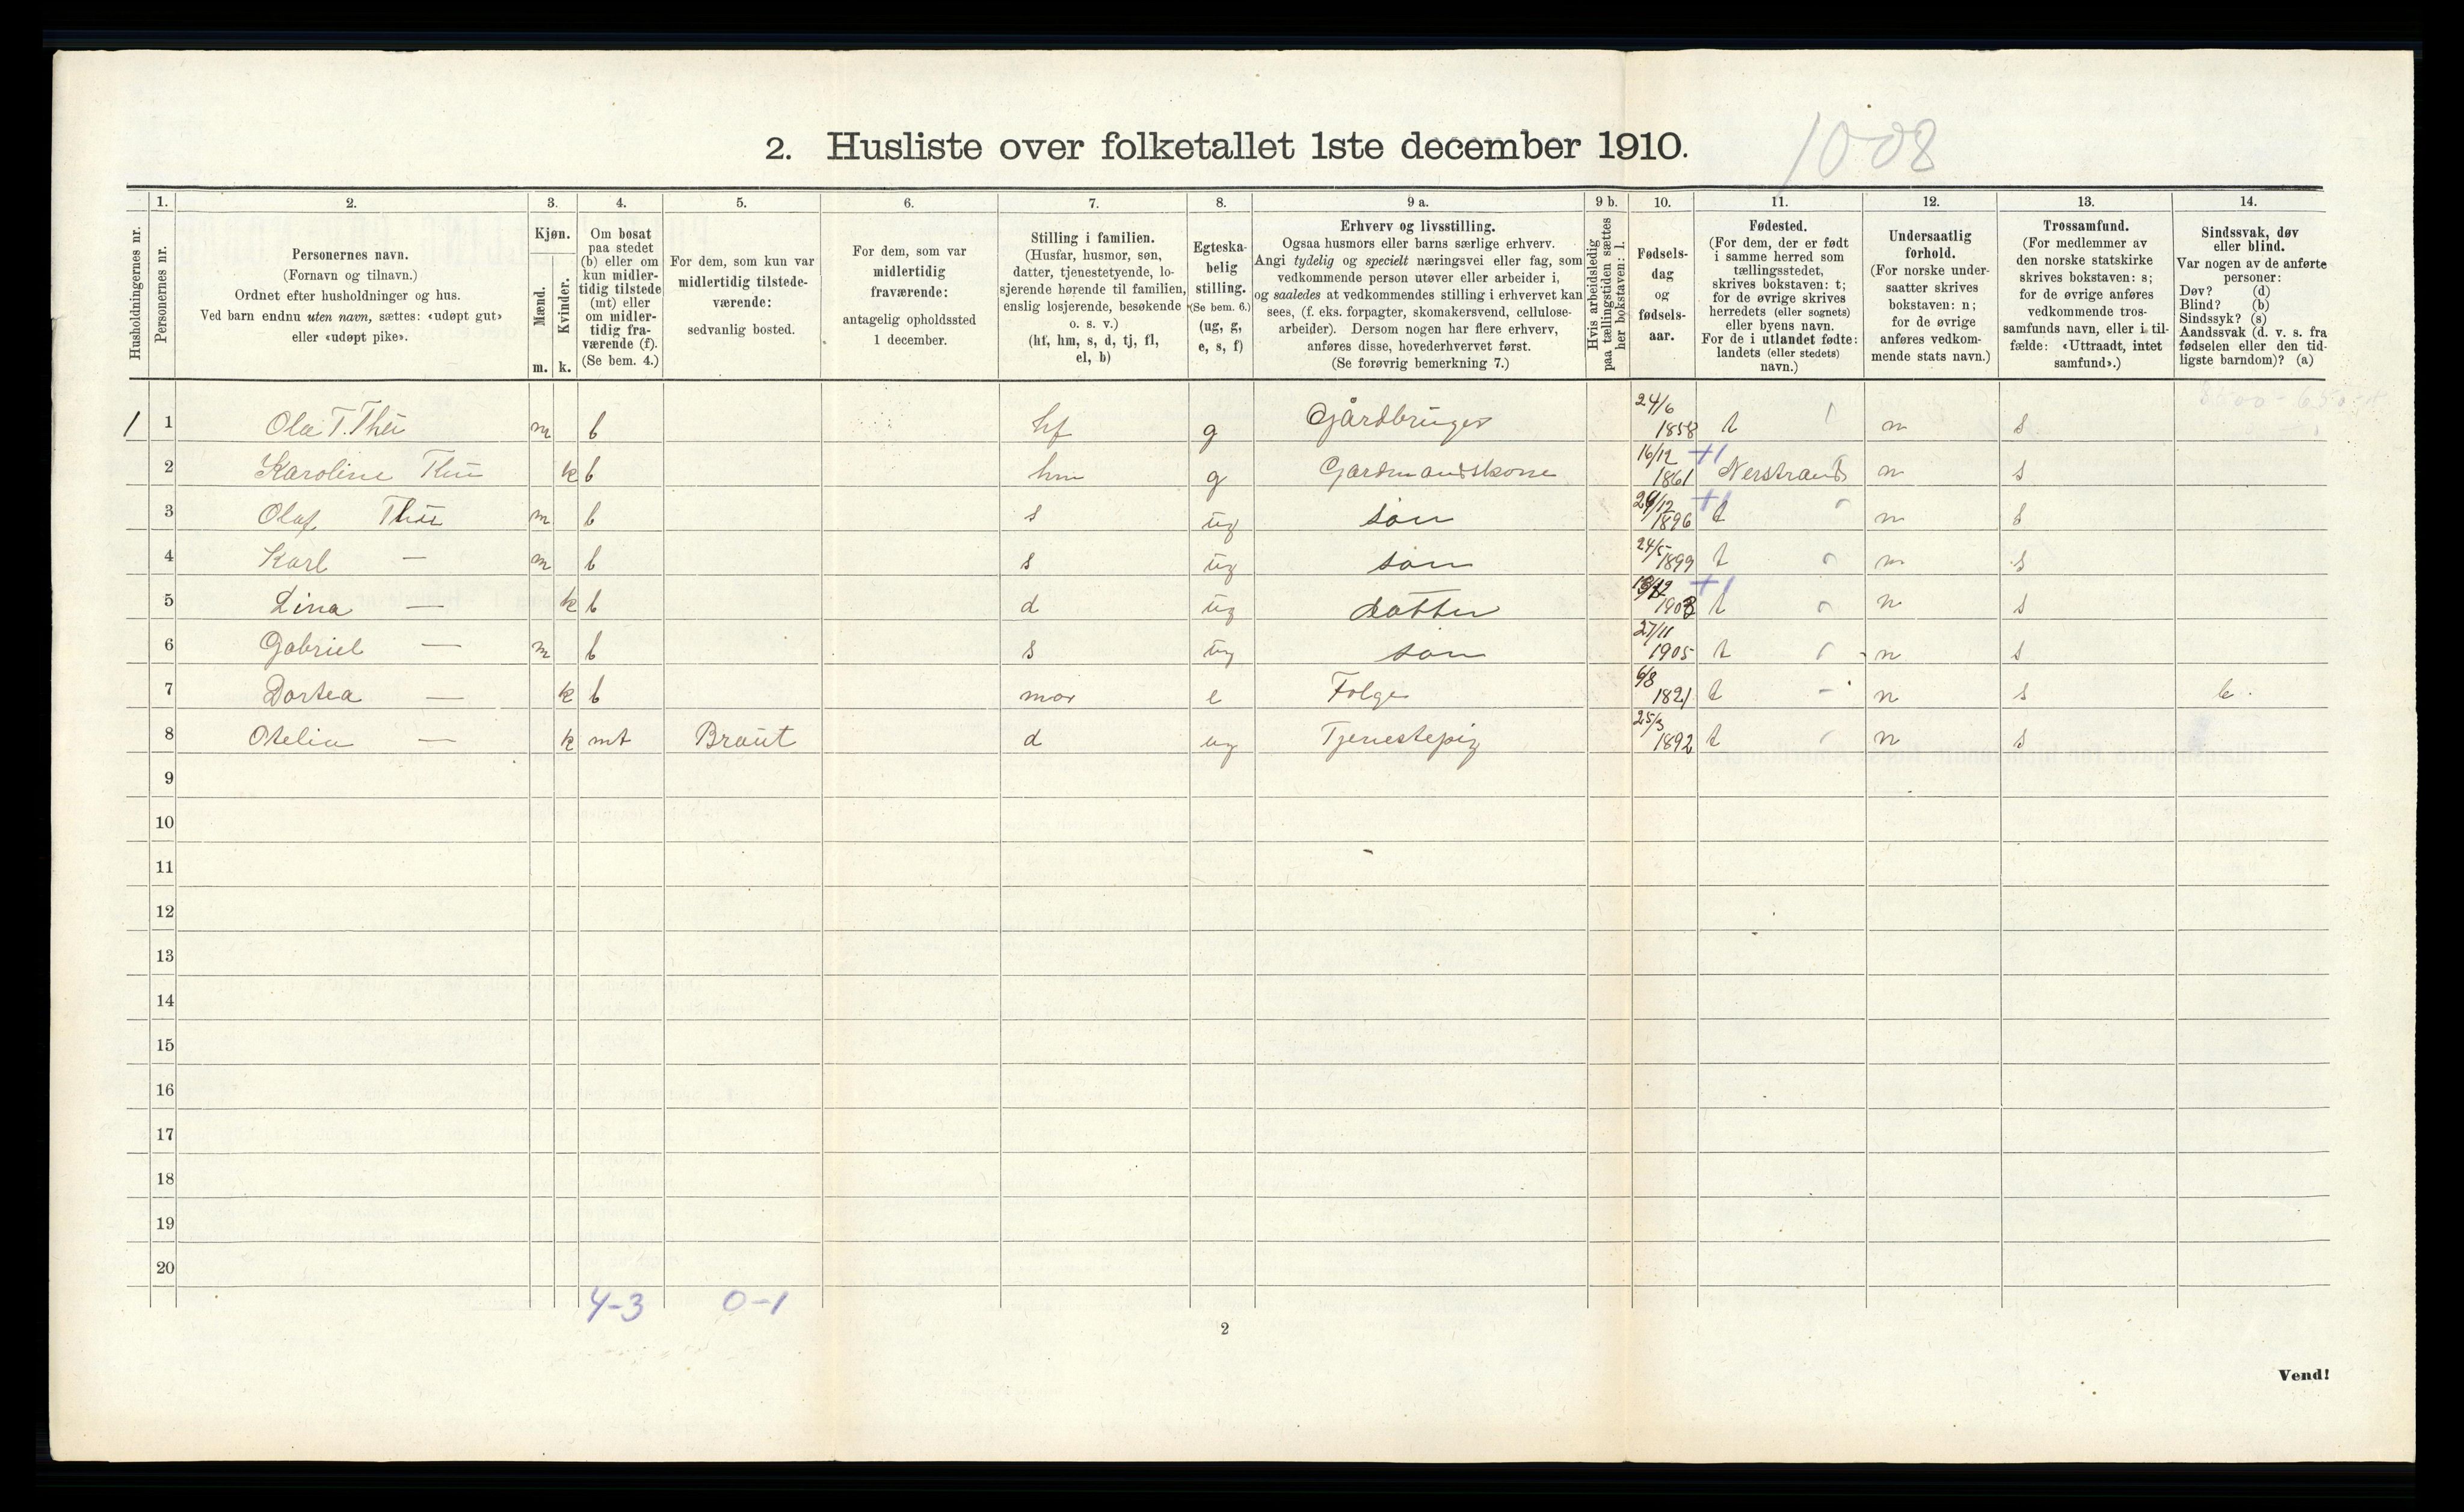 2. Husliste over folketallet 1ste december 1910.
1008
Husholdningernes nr.
1.
Personernes nr.
2.
Personernes navn.
(Fornavn og tilnavn.)
Ordnet efter husholdninger og hus.
Ved barn endnu uten navn, sættes: «udøpt gut»
eller «udøpt pike».
3.
Kjøn.
Mænd.
Kvinder.
m. k.
4.
Om bosat
paa stedet
(b) eller om
kun midler-
tidig tilstede
(mt) eller
om midler-
tidig fra-
værende (f).
(Se bem. 4.)
5.
For dem, som kun var
midlertidig tilstede-
værende:
sedvanlig bosted.
6.
For dem, som var
midlertidig
fraværende:
antagelig opholdssted
1 december.
7.
Stilling i familien.
(Husfar, husmor, søn,
datter, tjenestetyende, lo-
sjerende hørende til familien,
enslig losjerende, besøkende
o. s. v.)
(hf, hm, s, d, tj, fl,
el, b)
8.
Egteska-
belig
stilling.
(Se bem. 6.)
(ug, g,
e, s, f)
9 a.
Erhverv og livsstilling.
Ogsaa husmors eller barns særlige erhverv.
Angi tydelig og specielt næringsvei eller fag, som
vedkommende person utøver eller arbeider i,
og saaledes at vedkommendes stilling i erhvervet kan
sees, (f. eks. forpagter, skomakersvend, cellulose-
arbeider). Dersom nogen har flere erhverv,
anføres disse, hovederhvervet først.
(Se forøvrig bemerkning 7.)
9 b.
Hvis arbeidsledig
paa tællingstiden sættes
her bokstaven: l.
10.
Fødsels-
dag
og
fødsels-
aar.
11.
Fødested.
(For dem, der er født
i samme herred som
tællingsstedet,
skrives bokstaven: t;
for de øvrige skrives
herredets (eller sognets)
eller byens navn.
For de i utlandet fødte:
landets (eller stedets)
navn.)
12.
Undersaatlig
forhold.
(For norske under-
saatter skrives
bokstaven: n;
for de øvrige
anføres vedkom-
mende stats navn.)
13.
Trossamfund.
(For medlemmer av
den norske statskirke
skrives bokstaven: s;
for de øvrige anføres
vedkommende tros-
samfunds navn, eller i til-
fælde: «Uttraadt, intet
samfund».)
14.
Sindssvak, døv
eller blind.
Var nogen av de anførte
personer:
Døv? (d)
Blind? (b)
Sindssyk? (s)
Aandssvak (d. v. s. fra
fødselen eller den tid-
ligste barndom)? (a)
1 1 Ola T. m b hf g Gårdbruger 24/6 1858 t n s
2 Karoline k b hm g Gardmandskone 16/12 1861 Nerstrand n s
3 Olaf m b s ug søn 1896 t n s
4 Karl — m b s ug søn 24/5 1899 t n s
5 Lina — k b d ug datter 1903 t n s
6 Gabriel — m b s ug søn 27/11 1905 t n s
7 Dortea — k b mor e Folge 6/8 1821 t n s b.
8 Otelia — k mt Braut d ug Tjenestepig 25/3 1892 t n s
9
10
11
12
13
14
15
16
17
18
19
20
4-3 0-1
2
Vend!